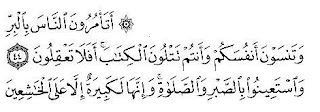 ۞ أَتَأۡمُرُونَ ٱلنَّاسَ بِٱلۡبِرِّ
وَتَنسَوۡنَ أَنفُسَكُمۡ وَأَنتُمۡ تَتۡلُونَ ٱلۡكِتَٰبَۚ أَفَلَا تَعۡقِلُونَ ٤٤
وَٱسۡتَعِينُواْ بِٱلصَّبۡرِ وَٱلصَّلَوٰةِۚ وَإِنَّهَا لَكَبِيرَةٌ إِلَّا عَلَى ٱلۡخَٰشِعِينَ